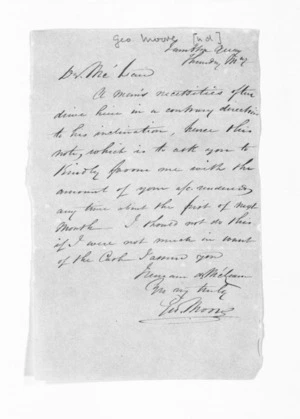 Geo Moore [nd]
Lambton Quay
Thursday Mg
Dr. McLean
A man's necessities often
drive him in a contrary direction
to his inclination, hence this
note, which is to ask you to
kindly favor me with the
amount of your a/c
any time about the first of next
Month. I should not do this
if I were not much in want
of the Cash I assure you
McLean
Yrs very truly
Geo. Moore